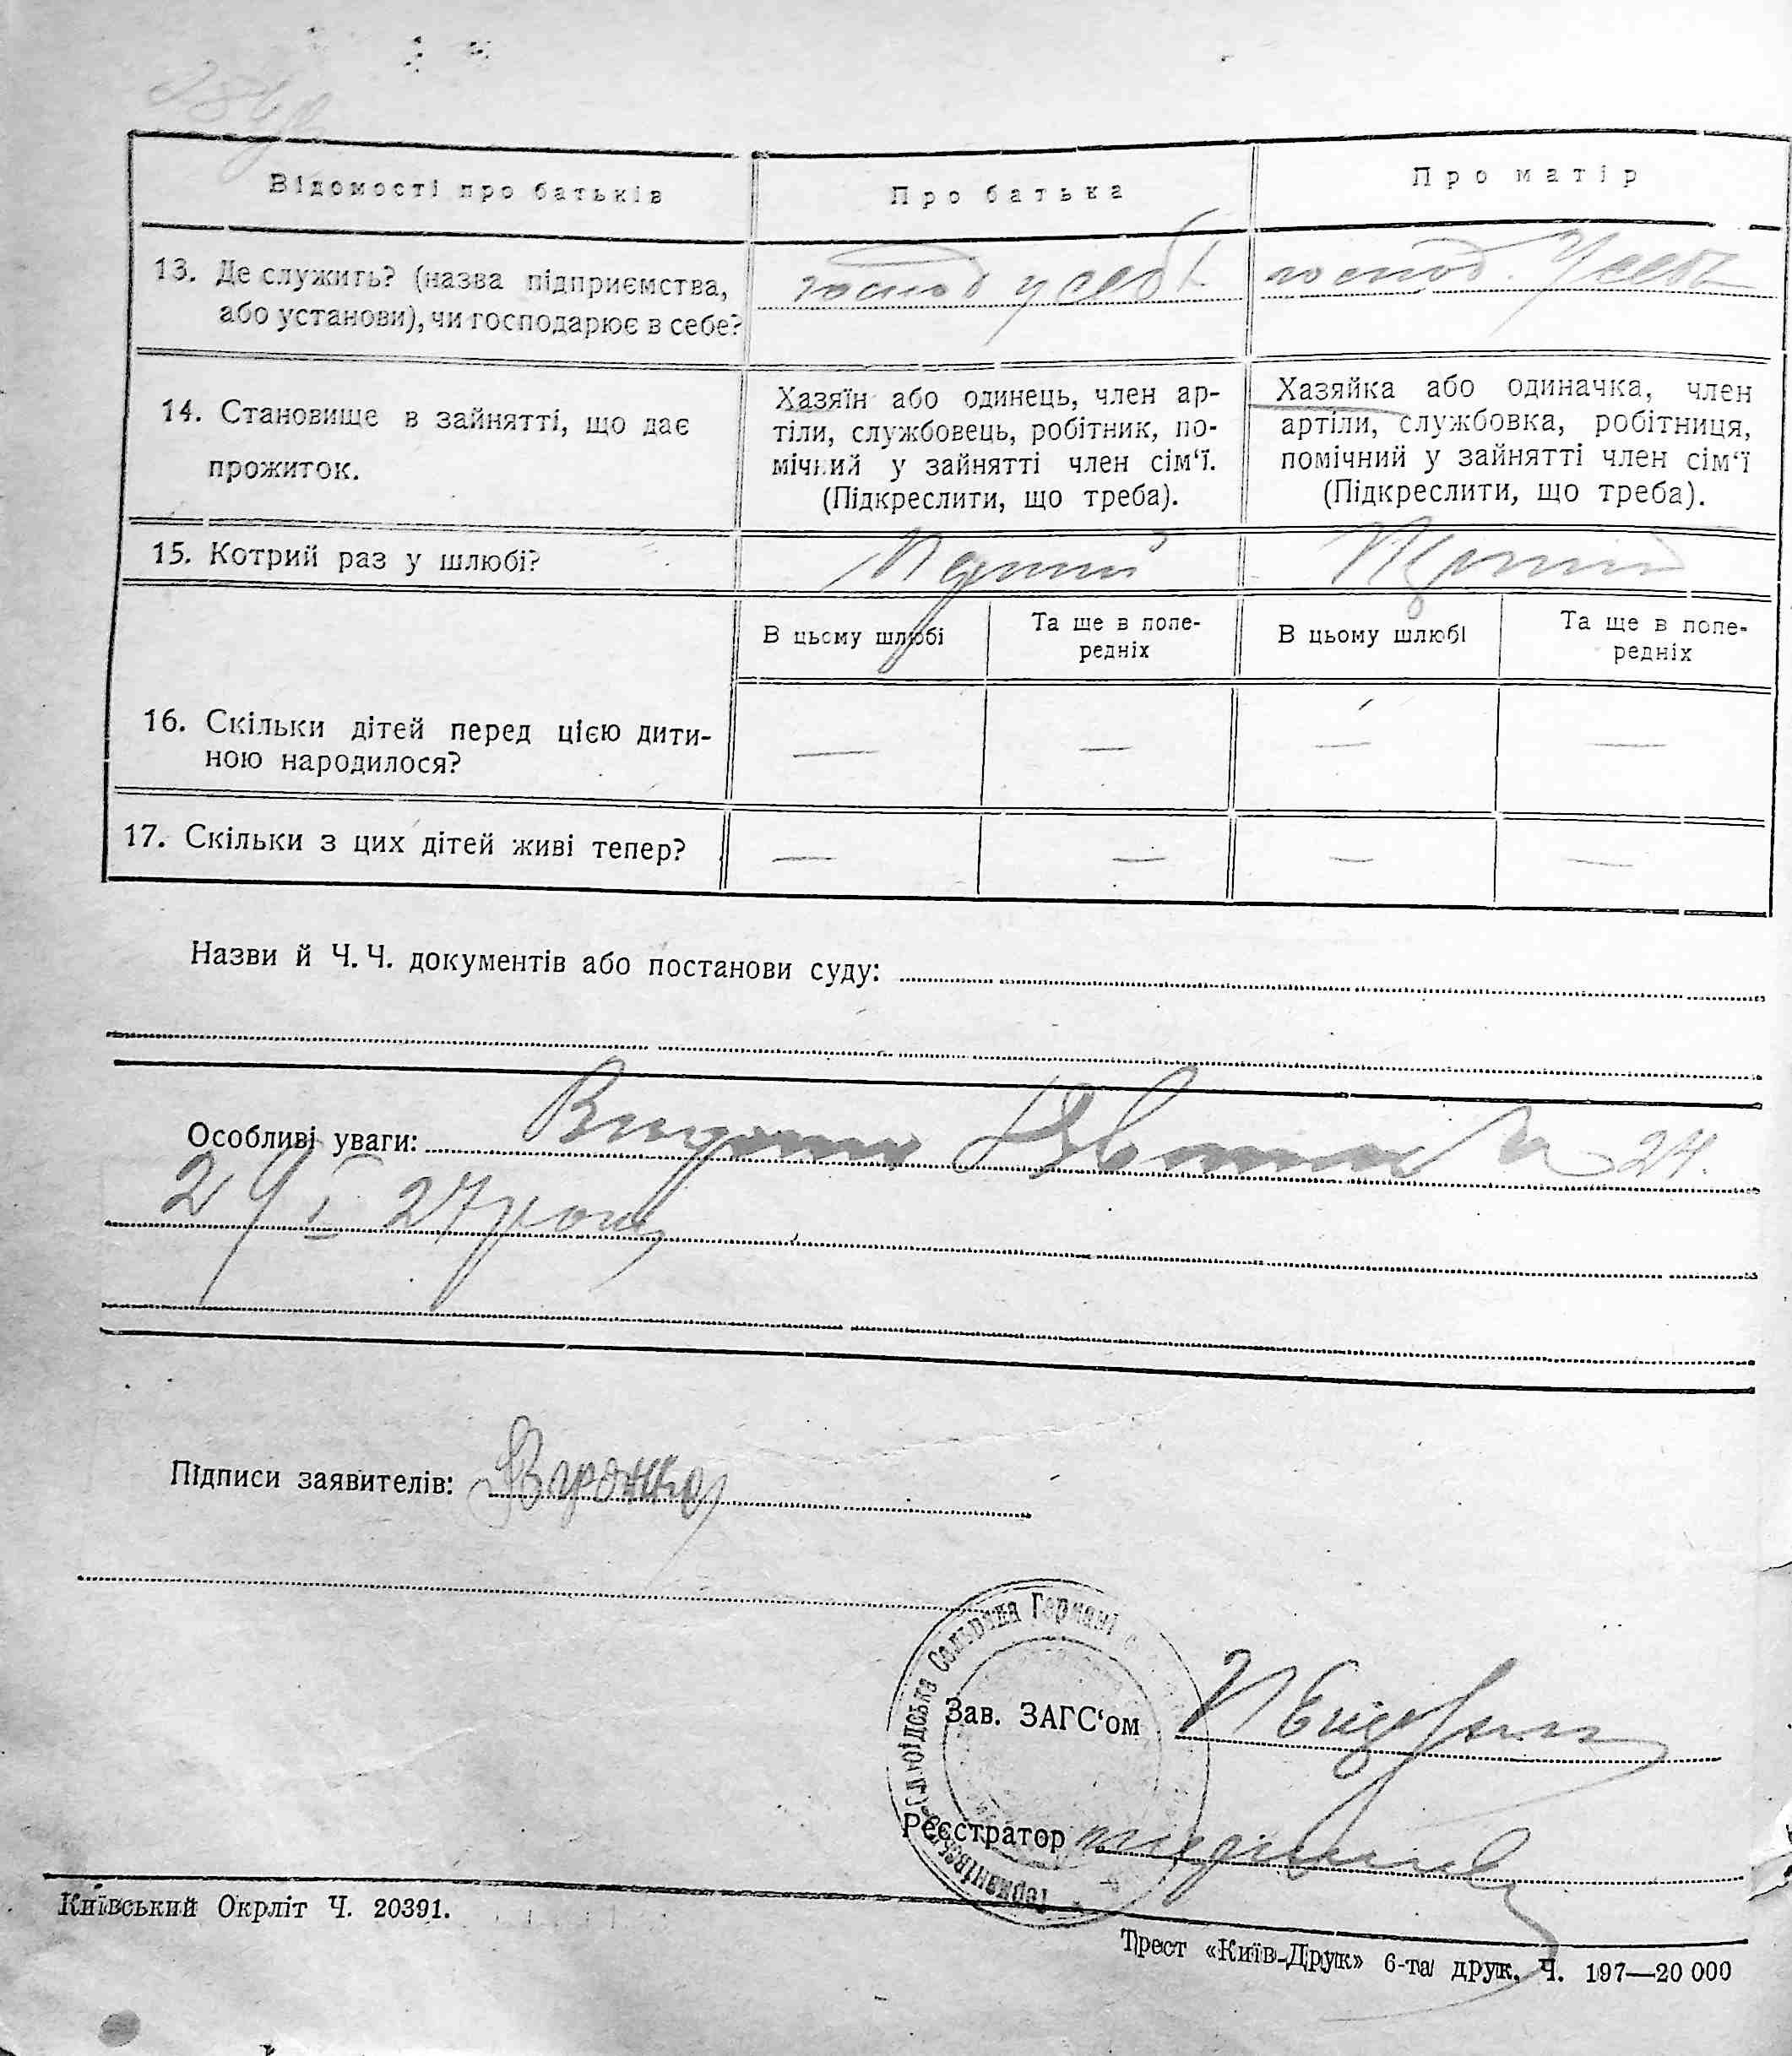 Відомості про батьків
Про батька
Про матір
13. Де служить? (назва підприємства,
або установи), чи господарює в себе?
господ у себе
господ. у себе
14. Становище в зайнятті, що дає
прожиток.
Хазяїн або одинець, член ар-
тіли, службовець, робітник, по-
мічний у зайнятті член сім‘ї.
(Підкреслити, що треба).
Хазяйка або одиначка, член
артіли, службовка, робітниця,
помічний у зайнятті член сім‘ї
(Підкреслити, що треба).
15. Котрий раз у шлюбі?
Перший
Перший
В цьому шлюбі
Та ще в попе-
редніх
В цьому шлюбі
Та ще в попе-
редніх
16. Скільки дітей перед цією дити-
ною народилося?
— — — —
17. Скільки з цих дітей живі тепер?
— — — —
Назви й Ч. Ч. документів або постанови суду:
Особливі уваги: Видано 24.
29 I 27 року
Підписи заявителів:
Сельрада Германі
Зав. ЗАГС‘ом
Реєстратор
Київський Окрліт Ч. 20391.
Трест «Київ-Друк» 6-та друк. Ч. 197—20 000